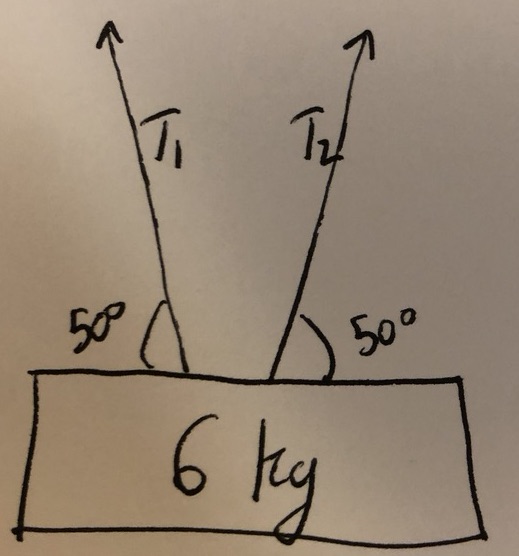 T₁ T₂
50° 50°
6 kg